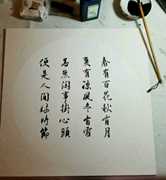 春有百花秋有月
夏有凉風冬有雪
若無闲事掛心頭
便是人间好时節